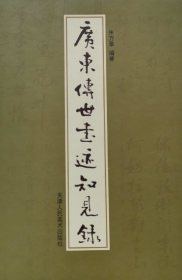 朱万章 编著
廣東傳世書迹知見錄
天津人民美术出版社